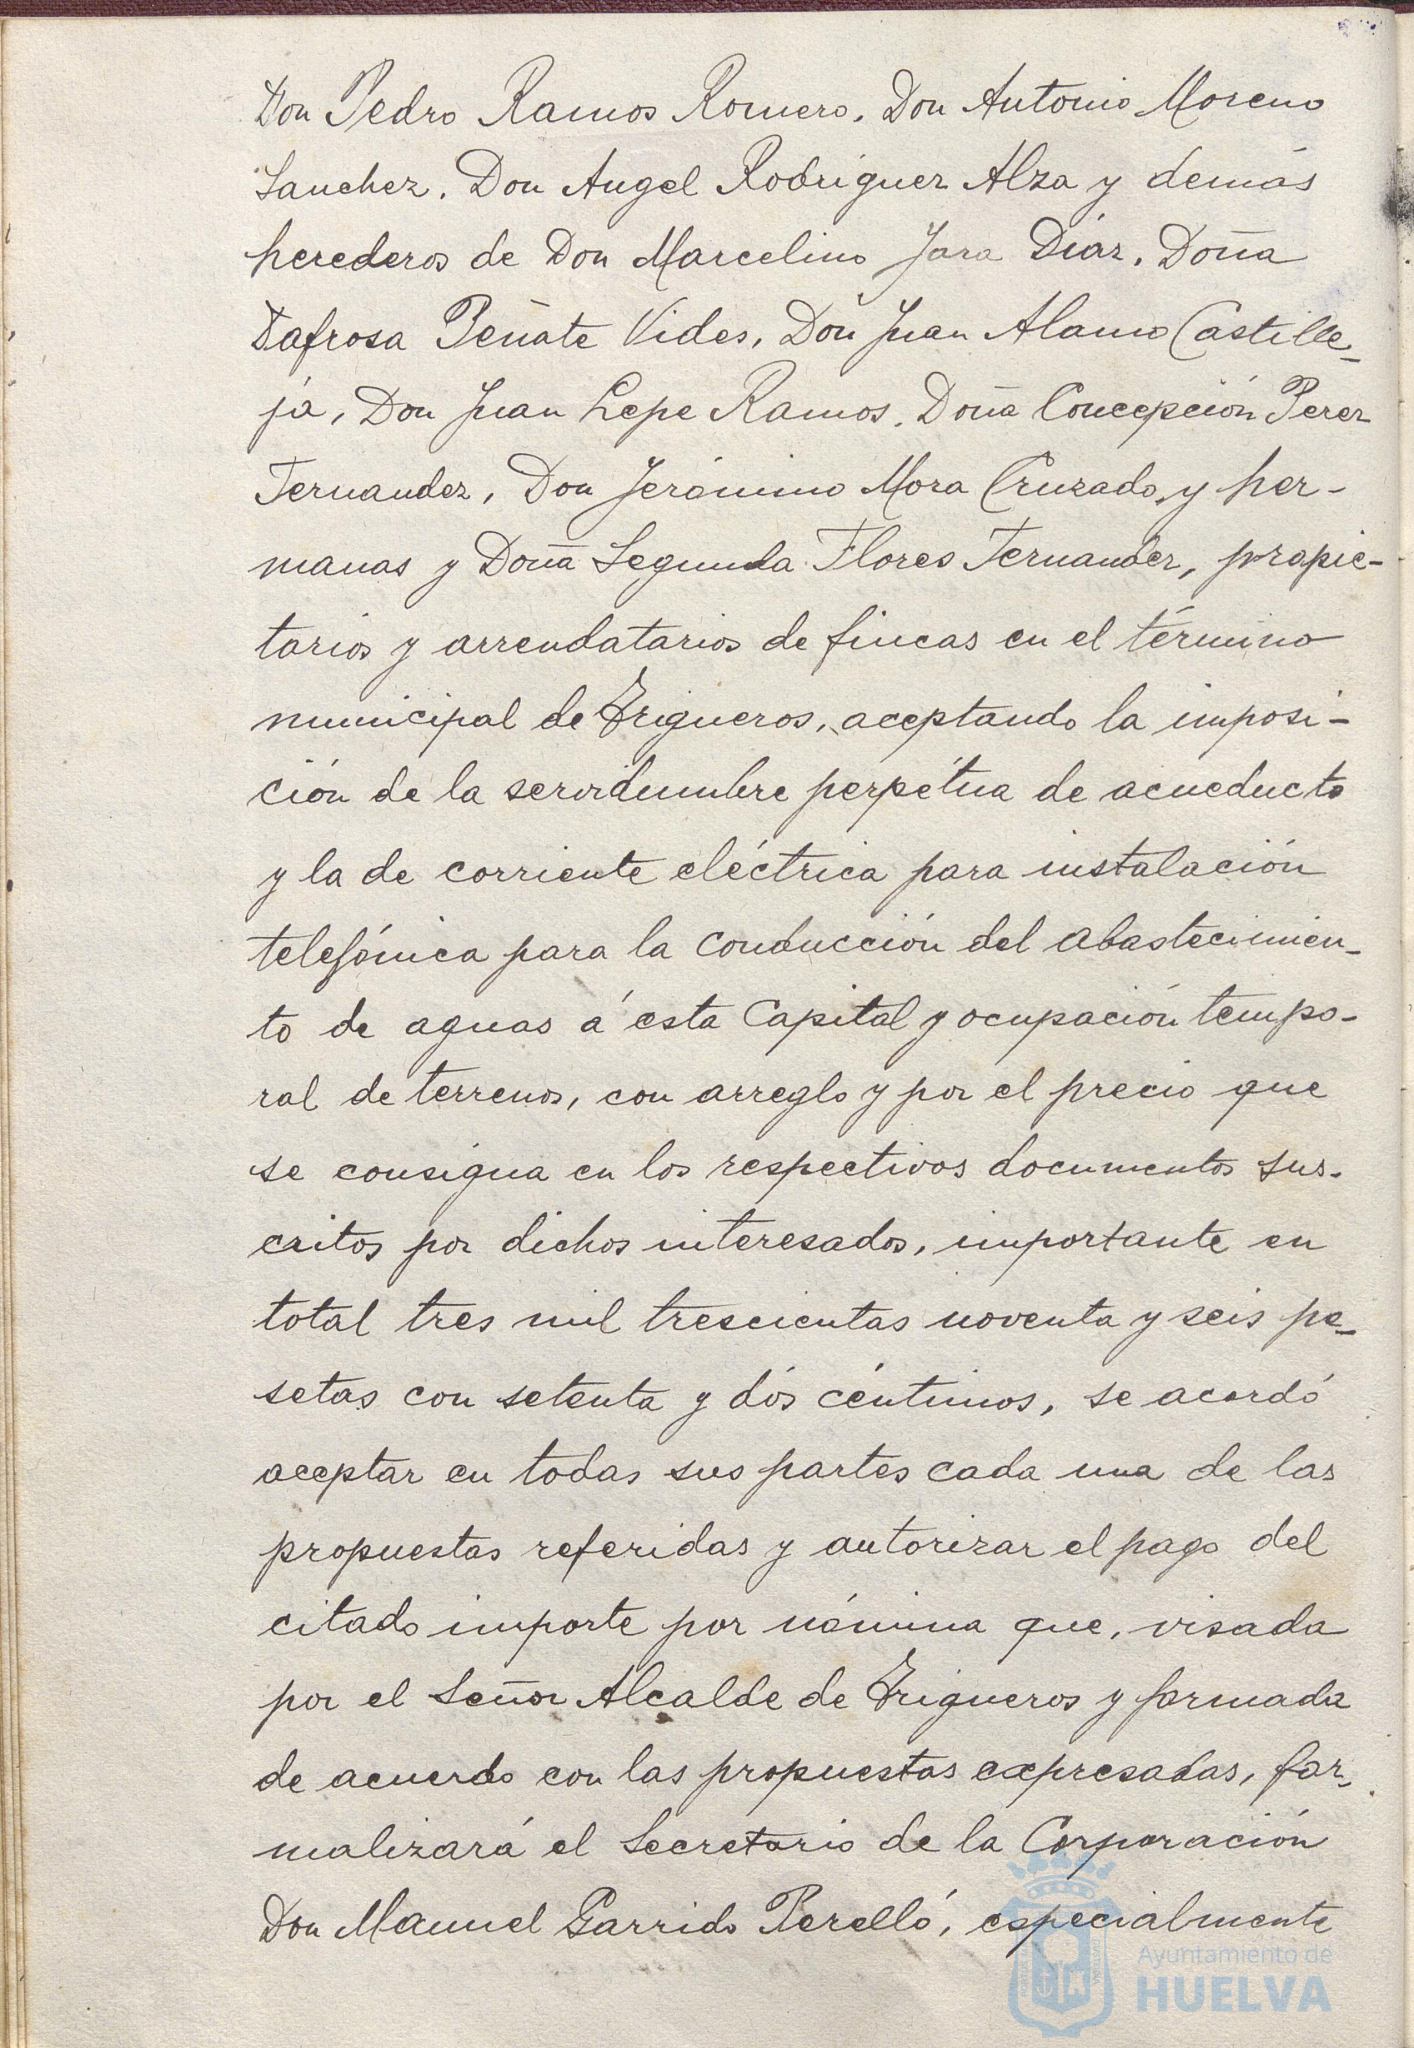 Don Pedro Ramos Romero, Don Antonio Moreno
Sanchez, Don Angel Rodríguez Alza y demás
herederos de Don Marcelino Jara Díaz, Doña
Dafrosa Peñate Vides, Don Juan Alamo Castille-
ja, Don Juan Lepe Ramos, Doña Concepción Perez
Fernandez, Don Jerónimo Mora Cruzado, y her-
manas y Doña Segunda Flores Fernandez, propie-
tarios y arrendatarios de fincas en el término
municipal de Trigueros, aceptando la imposi-
ción de la servidumbre perpétua de acueducto
y la de corriente eléctrica para instalación
telefónica para la conducción del abastecimien-
to de aguas á esta Capital y ocupación tempo-
ral de terrenos, con arreglo y por el precio que
se consigna en los respectivos documentos sus-
critos por dichos interesados, importante en
total tres mil trescientas noventa y seis pe-
setas con setenta y dós céntimos, se acordó
aceptar en todas sus partes cada una de las
propuestas referidas y autorizar el pago del
citado importe por nómina que, visada
por el Señor Alcalde de Trigueros y formada
de acuerdo con las propuestas expresadas, for-
malizará el Secretario de la Corporación
Don Manuel Garrido Perelló, especialmente
Ayuntamiento de
HUELVA